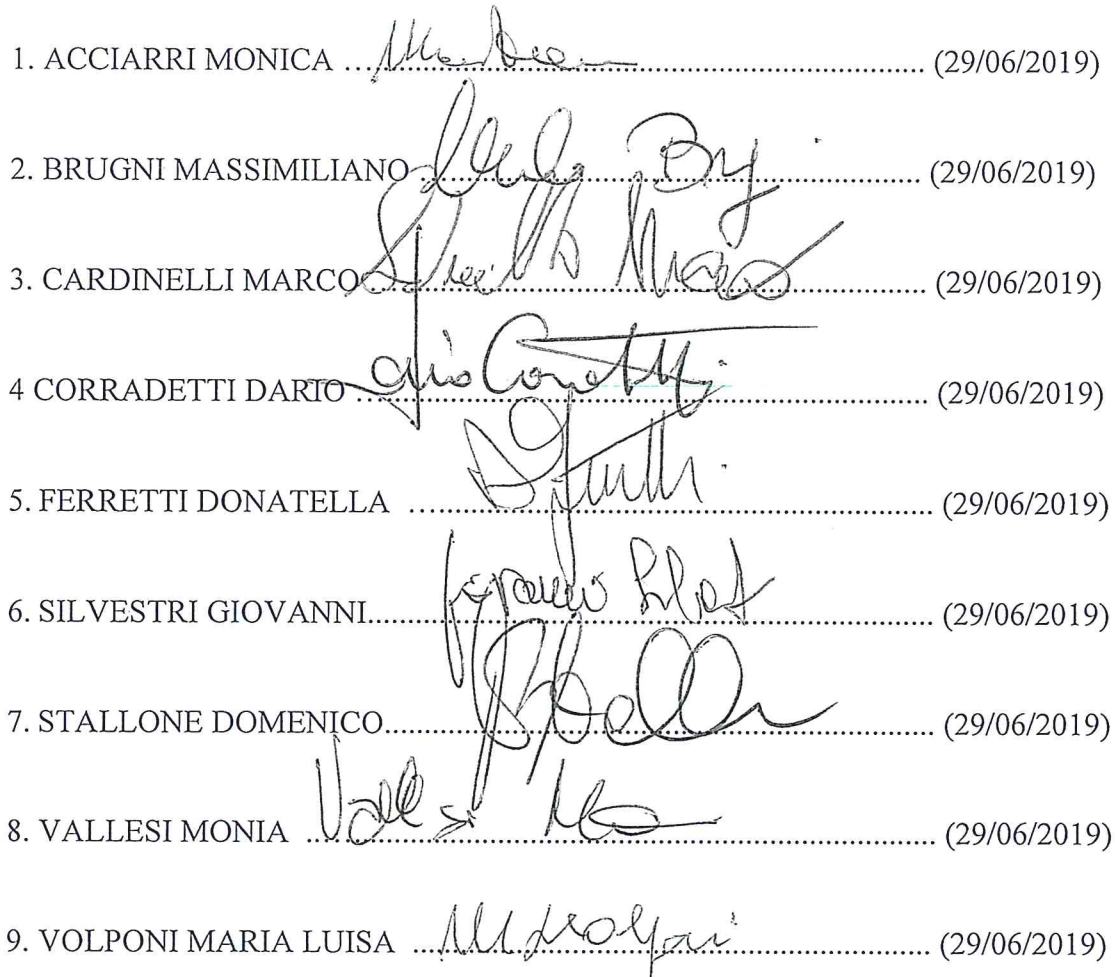 1. ACCIARRI MONICA .................... (29/06/2019)
2. BRUGNI MASSIMILIANO .................... (29/06/2019)
3. CARDINELLI MARCO .................... (29/06/2019)
4 CORRADETTI DARIO .................... (29/06/2019)
5. FERRETTI DONATELLA .................... (29/06/2019)
6. SILVESTRI GIOVANNI .................... (29/06/2019)
7. STALLONE DOMENICO .................... (29/06/2019)
8. VALLESI MONIA .................... (29/06/2019)
9. VOLPONI MARIA LUISA .................... (29/06/2019)